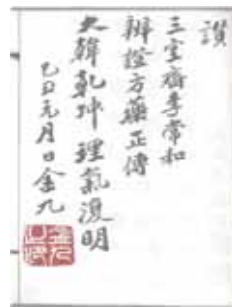 讚
三空齋李常和
辨證方藥正傳
大韓乾坤理氣復明
乙丑元月日金九